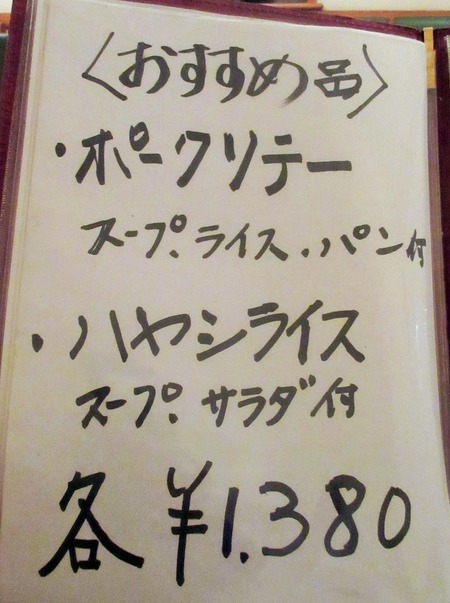 〈おすすめ品〉
・ポークソテー
スープ、ライス、パン付
・ハヤシライス
スープ、サラダ付
各¥1.380